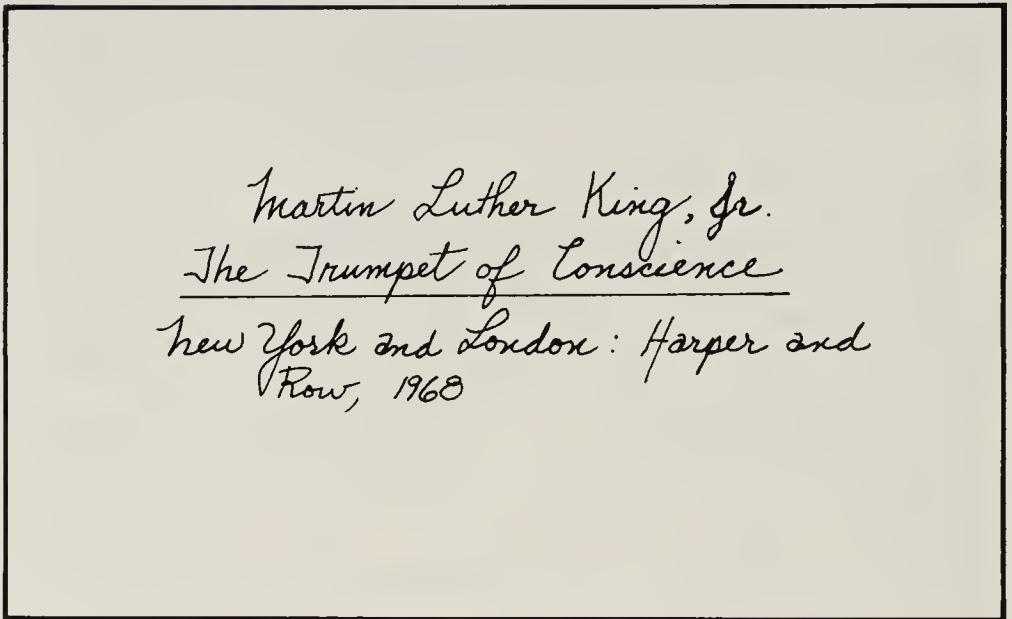 Martin Luther King, Jr.
The Trumpet of Conscience
New York and London: Harper and
Row, 1968